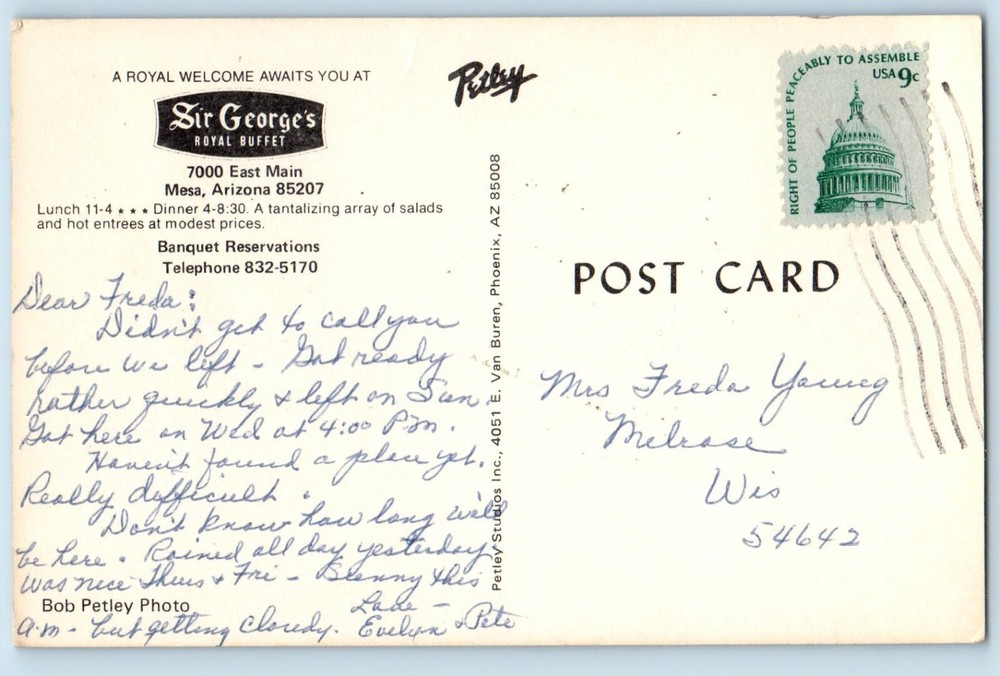 A ROYAL WELCOME AWAITS YOU AT
Sir George's
ROYAL BUFFET
7000 East Main
Mesa, Arizona 85207
Lunch 11-4 ★ ★ ★ Dinner 4-8:30. A tantalizing array of salads
and hot entrees at modest prices.
Banquet Reservations
Telephone 832-5170
Dear Freda:
Didn't get to call you
before we left - Got ready
rather quickly & left on Sun.
Got here on Wed at 4:00 P.m.
Haven't found a place yet.
Really difficult.
Don't know how long we'll
be here. Rained all day yesterday.
Was nice Thurs & Fri - Sunny this
a.m - but getting cloudy.
Love -
Evelyn & Pete
Bob Petley Photo
Petley
Petley Studios Inc., 4051 E. Van Buren, Phoenix, AZ 85008
RIGHT OF PEOPLE PEACEABLY TO ASSEMBLE
USA 9c
POST CARD
Mrs Freda Young
Melrose
Wis
54642